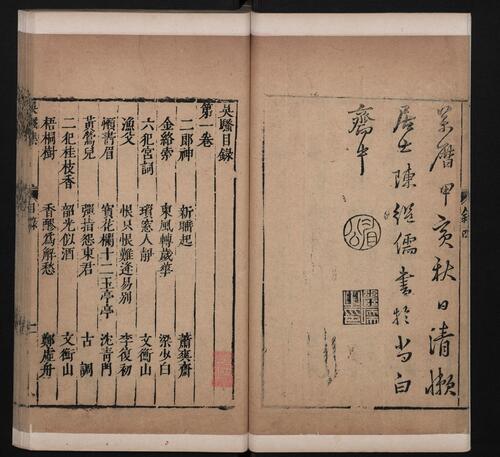 萬曆甲寅秋日清懶
居士陳繼儒書於尚白
齋中
眉公
吳騷目錄
第一卷
二郎神 蕭爽齋
金絡索 東風轉歲華 梁少白
六犯宮詞 瑣窓人靜 文衡山
漁父 恨只恨難逢易別 李復初
懶畫眉 寶花欄十二玉亭亭 沈青門
黃鶯兒 彈指怨東君 古調
二犯桂枝香 韶光似酒 文衡山
梧桐樹 香醪爲解愁 鄭虛舟
吳騷集 目錄 一